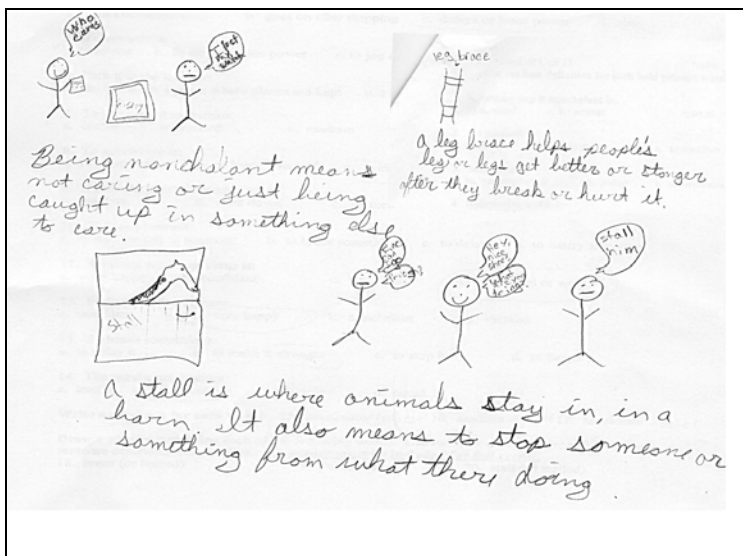 Who
cares
I lost
my
leg brace
Being nonchalant means
not caring or just being
caught up in something else
to care.
A leg brace helps people's
leg or legs get better or stonger
after they break or hurt it.
Hey,
nice
shoes
What
are you
doing?
Stall
him
stall
A stall is where animals stay in, in a
barn. It also means to stop someone or
something from what there doing.